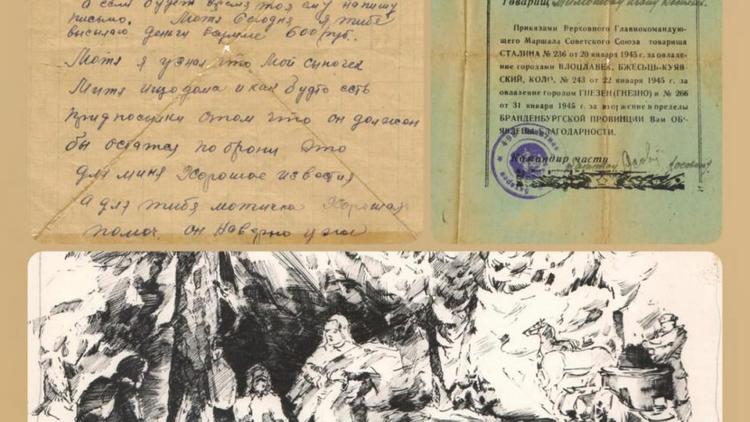 а если будет время то я ему напишу
письмо. Мотя Сегодня я тибе
высылаю денги в сумме 600 руб.
Мотя я узнал что мой сыночек
Митя ищо дома и как будто есть
о том что он должен
бы остатся по брони это
для миня Хорошое известия
а для тибя мотичка Хорошая
он наверно уже
Товарищ
Приказами Верховного Главнокомандую-
щего Маршала Советского Союза товарища
СТАЛИНА № 236 от 20 января 1945 г. за овладе-
ние городами ВЛОЦЛАВЕК, БЖЕСЬЦЬ-КУЯВ-
СКИЙ, КОЛО, № 243 от 22 января 1945 г. за
овладение городом ГНЕЗЕН (ГНЕЗНО) и № 266
от 31 января 1945 г. за вторжение в пределы
БРАНДЕНБУРГСКОЙ ПРОВИНЦИИ Вам ОБ'-
ЯВЛЕНА БЛАГОДАРНОСТИ.
Командир части